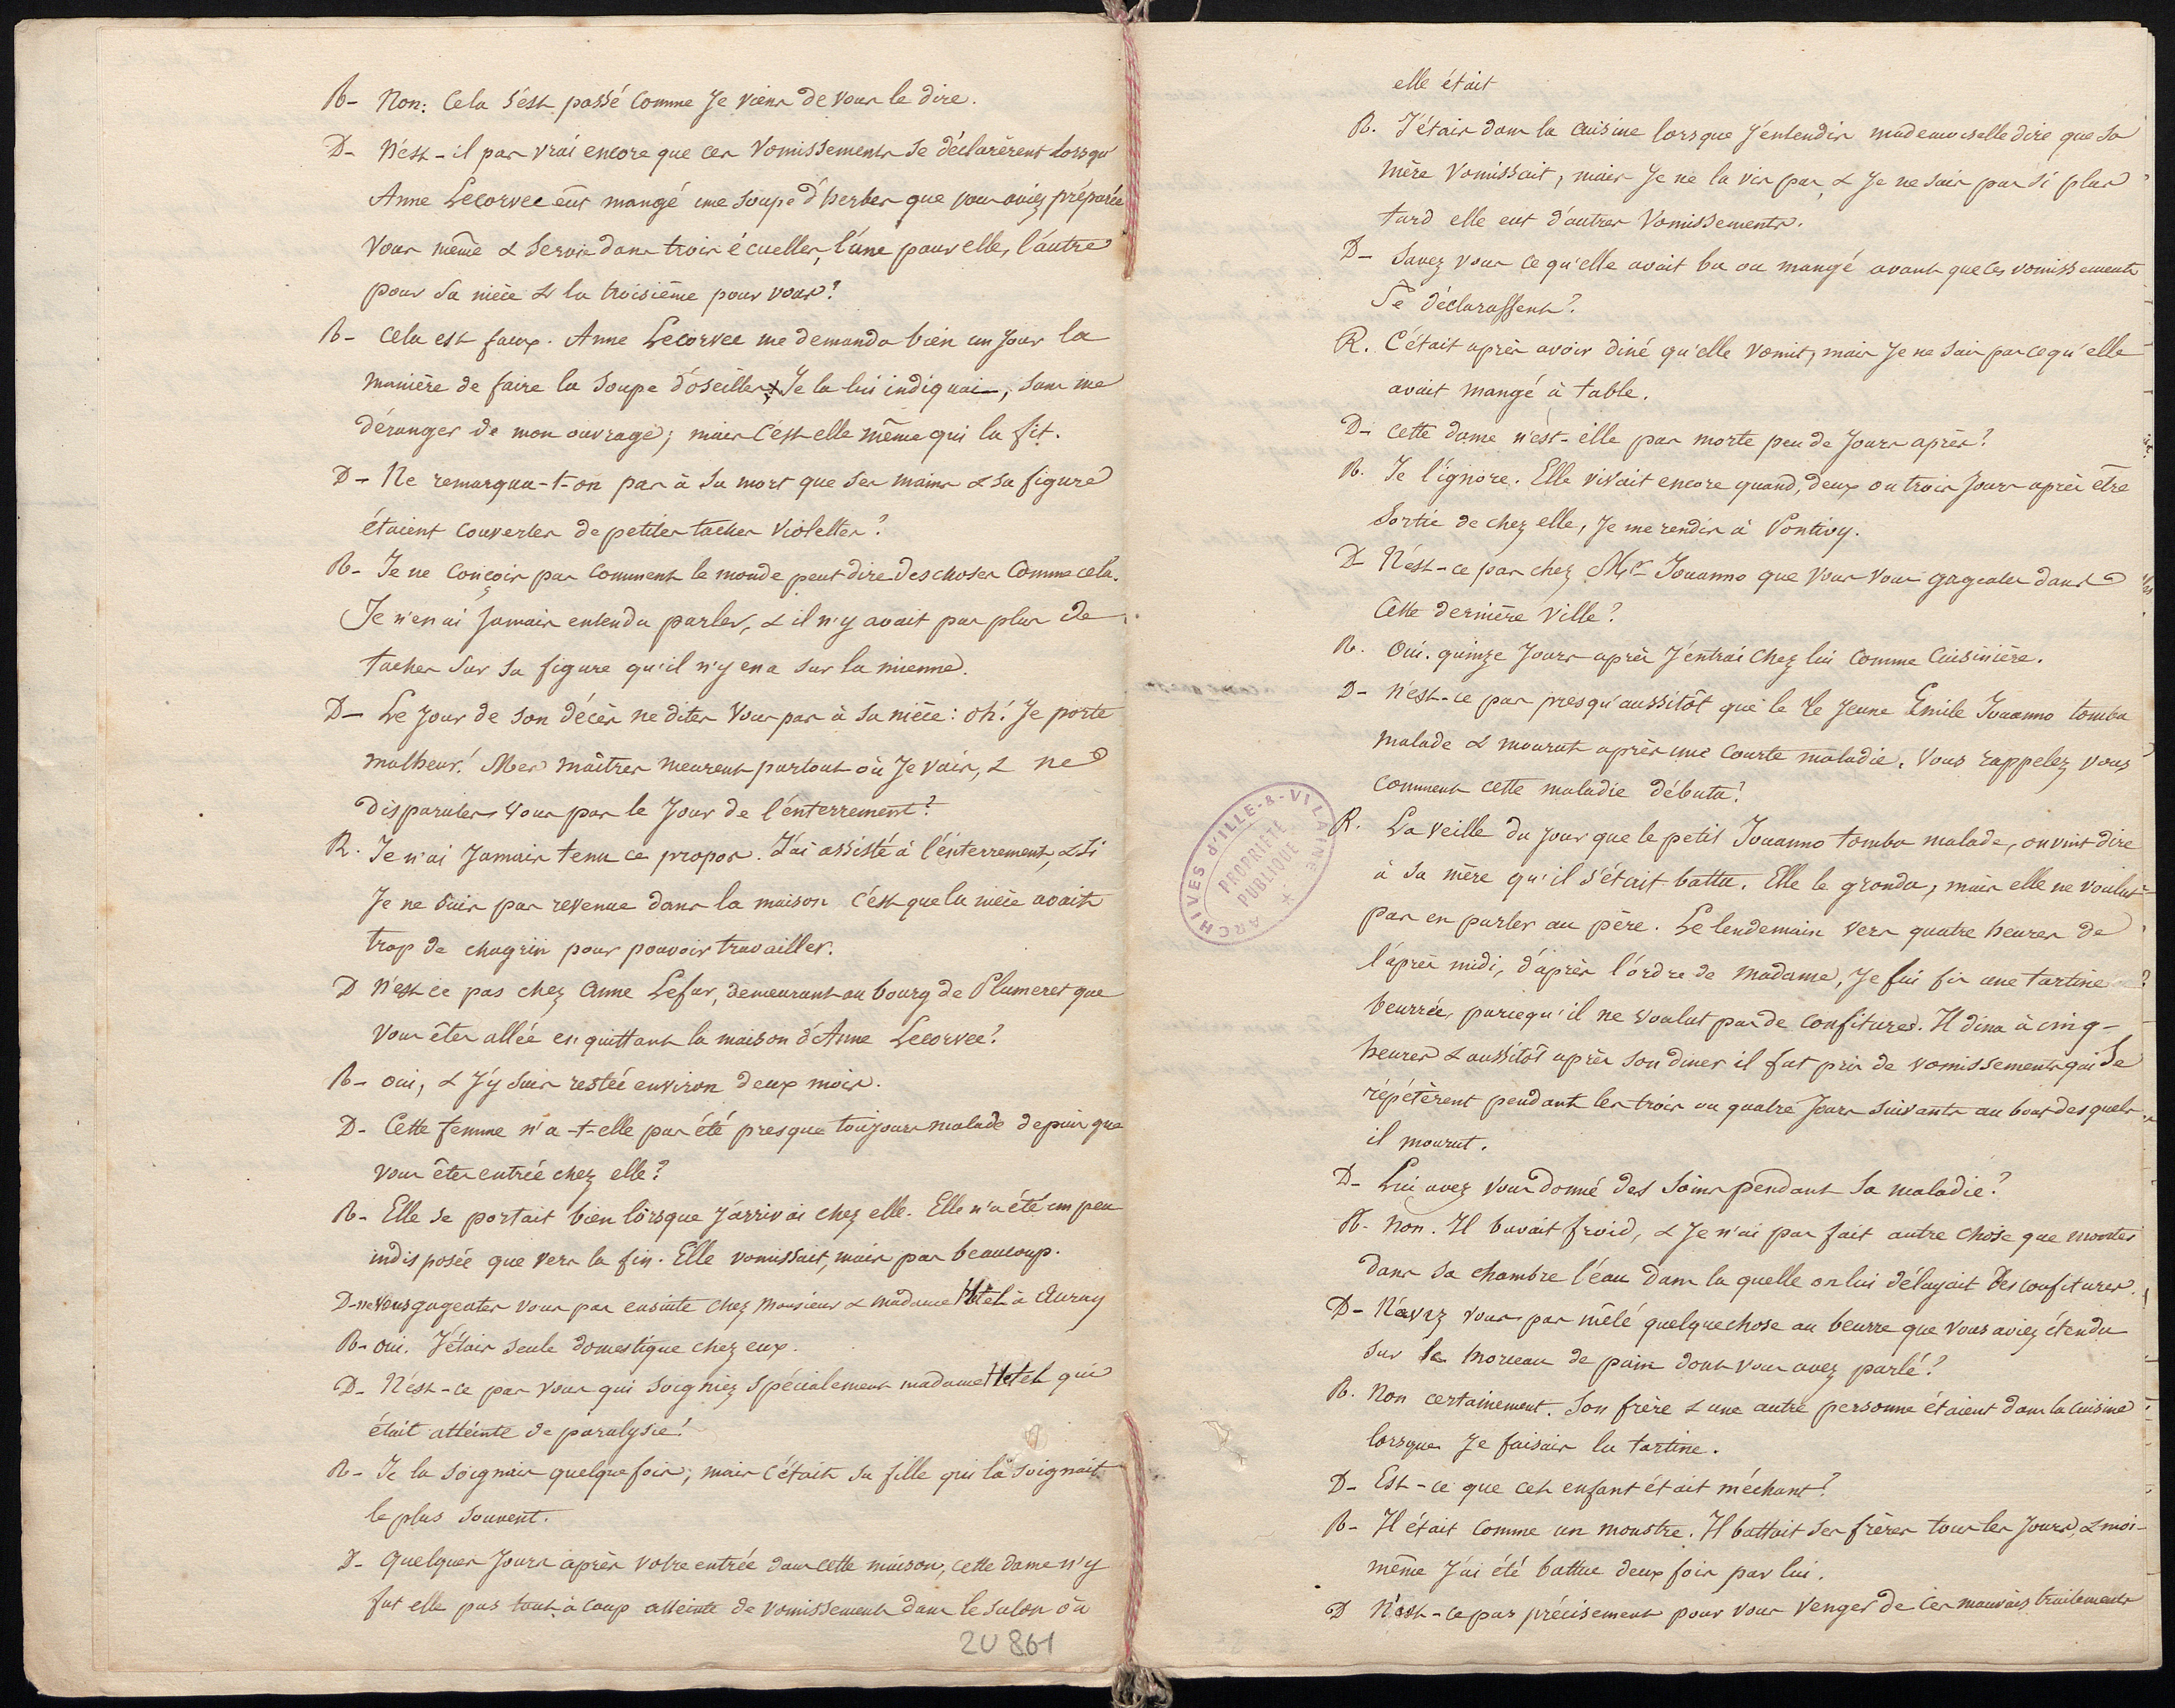 R- Non: Cela s'est passé comme Je viens de vous le dire.
D- N'est-il pas vrai encore que ces vomissements se déclarèrent lorsqu'
Anne Lecorvec eût mangé une soupe d'herbes que vous aviez préparée
vous même & servie dans trois écuelles, l'une pour elle, l'autre
pour sa nièce & la troisième pour vous?
R- Cela est faux. Anne Lecorvec me demanda bien un Jour la
manière de faire la soupe d'oseille, & Je la lui indiquai, sans me
déranger de mon ouvrage; mais c'est elle même qui la fit.
D- Ne remarqua-t-on pas à sa mort que ses mains & sa figure
étaient couvertes de petites taches violettes?
R- Je ne conçois pas comment le monde peut dire des choses comme cela.
Je n'en ai Jamais entendu parler, & il n'y avait pas plus de
taches sur sa figure qu'il n'y en a sur la mienne.
D- Le Jour de son décès ne dites vous pas à sa nièce: oh! Je porte
malheur! Mes maîtres meurent partout où Je vais, & ne
disparutes vous pas le Jour de l'enterrement?
R. Je n'ai Jamais tenu ce propos. J'ai assisté à l'enterrement, & si
Je ne suis pas revenue dans la maison c'est que la nièce avait
trop de chagrin pour pouvoir travailler.
D N'est ce pas chez Anne Lefur, demeurant au bourg de Plumeret que
vous êtes allée en quittant la maison d'Anne Lecorvec?
R- oui, & J'y suis restée environ deux mois.
D- Cette femme n'a-t-elle pas été presque toujours malade depuis que
vous êtes entrée chez elle?
R- Elle se portait bien lorsque J'arrivai chez elle. Elle n'a été un peu
indisposée que vers la fin. Elle vomissait, mais pas beaucoup.
D- ne vous gageates vous pas ensuite chez Monsieur & madame Hetel à Auray
R- oui. J'étais seule domestique chez eux.
D- N'est-ce pas vous qui soigniez spécialement madame Hetel qui
était atteinte de paralysie?
R- Je la soignais quelquefois; mais c'était sa fille qui la soignait
le plus souvent.
D- Quelques Jours après votre entrée dans cette maison, cette dame n'y
fut elle pas tout à coup atteinte de vomissements dans le salon où
2U 861
elle était
R. J'étais dans la cuisine lorsque J'entendis mademoiselle dire que sa
mère vomissait, mais Je ne la vis pas, & Je ne sais pas si plus
tard elle eut d'autres vomissements.
D- Savez vous ce qu'elle avait bu ou mangé avant que ces vomissements
se déclarassent?
R. C'était après avoir diné qu'elle vomit, mais Je ne sais pas ce qu'elle
avait mangé à table.
D- cette dame n'est-elle pas morte peu de Jours après?
R. Je l'ignore. Elle vivait encore quand, deux ou trois Jours après être
sortie de chez elle, Je me rendis à Pontivy.
D- N'est-ce pas chez Mr Jouanno que vous vous gageates dans
cette dernière ville?
R. Oui. quinze Jours après J'entrai chez lui comme cuisinière.
D- N'est-ce pas presqu'aussitôt que le le Jeune Emile Jouanno tomba
malade & mourut après une courte maladie. Vous rappelez vous
comment cette maladie débuta?
R. La veille du Jour que le petit Jouanno tomba malade, on vint dire
à sa mère qu'il s'était battu. Elle le gronda, mais elle ne voulut
pas en parler au père. Le lendemain vers quatre heures de
l'après midi, d'après l'ordre de madame, Je lui fis une tartine
beurrée, parcequ'il ne voulut pas de confitures. Il dina à cinq
heures & aussitôt après son diner il fut pris de vomissements qui se
répétèrent pendant les trois ou quatre Jours suivants au bout desquels
il mourut.
D- Lui avez vous donné des soins pendant sa maladie?
R- Non. Il buvait froid, & Je n'ai pas fait autre chose que monter
dans sa chambre l'eau dans la quelle on lui délayait des confitures.
D- N'avez vous pas mêlé quelquechose au beurre que vous aviez étendu
sur le morceau de pain dont vous avez parlé?
R. Non certainement. Son frère & une autre personne étaient dans la cuisine
lorsque Je faisais la tartine.
D- Est-ce que cet enfant était méchant?
R- Il était comme un monstre. Il battait ses frères tous les Jours, & moi-
même J'ai été battue deux fois par lui.
D N'est-ce pas précisement pour vous venger de ces mauvais traitements
ARCHIVES D'ILLE-&-VILAINE
PROPRIÉTÉ
PUBLIQUE